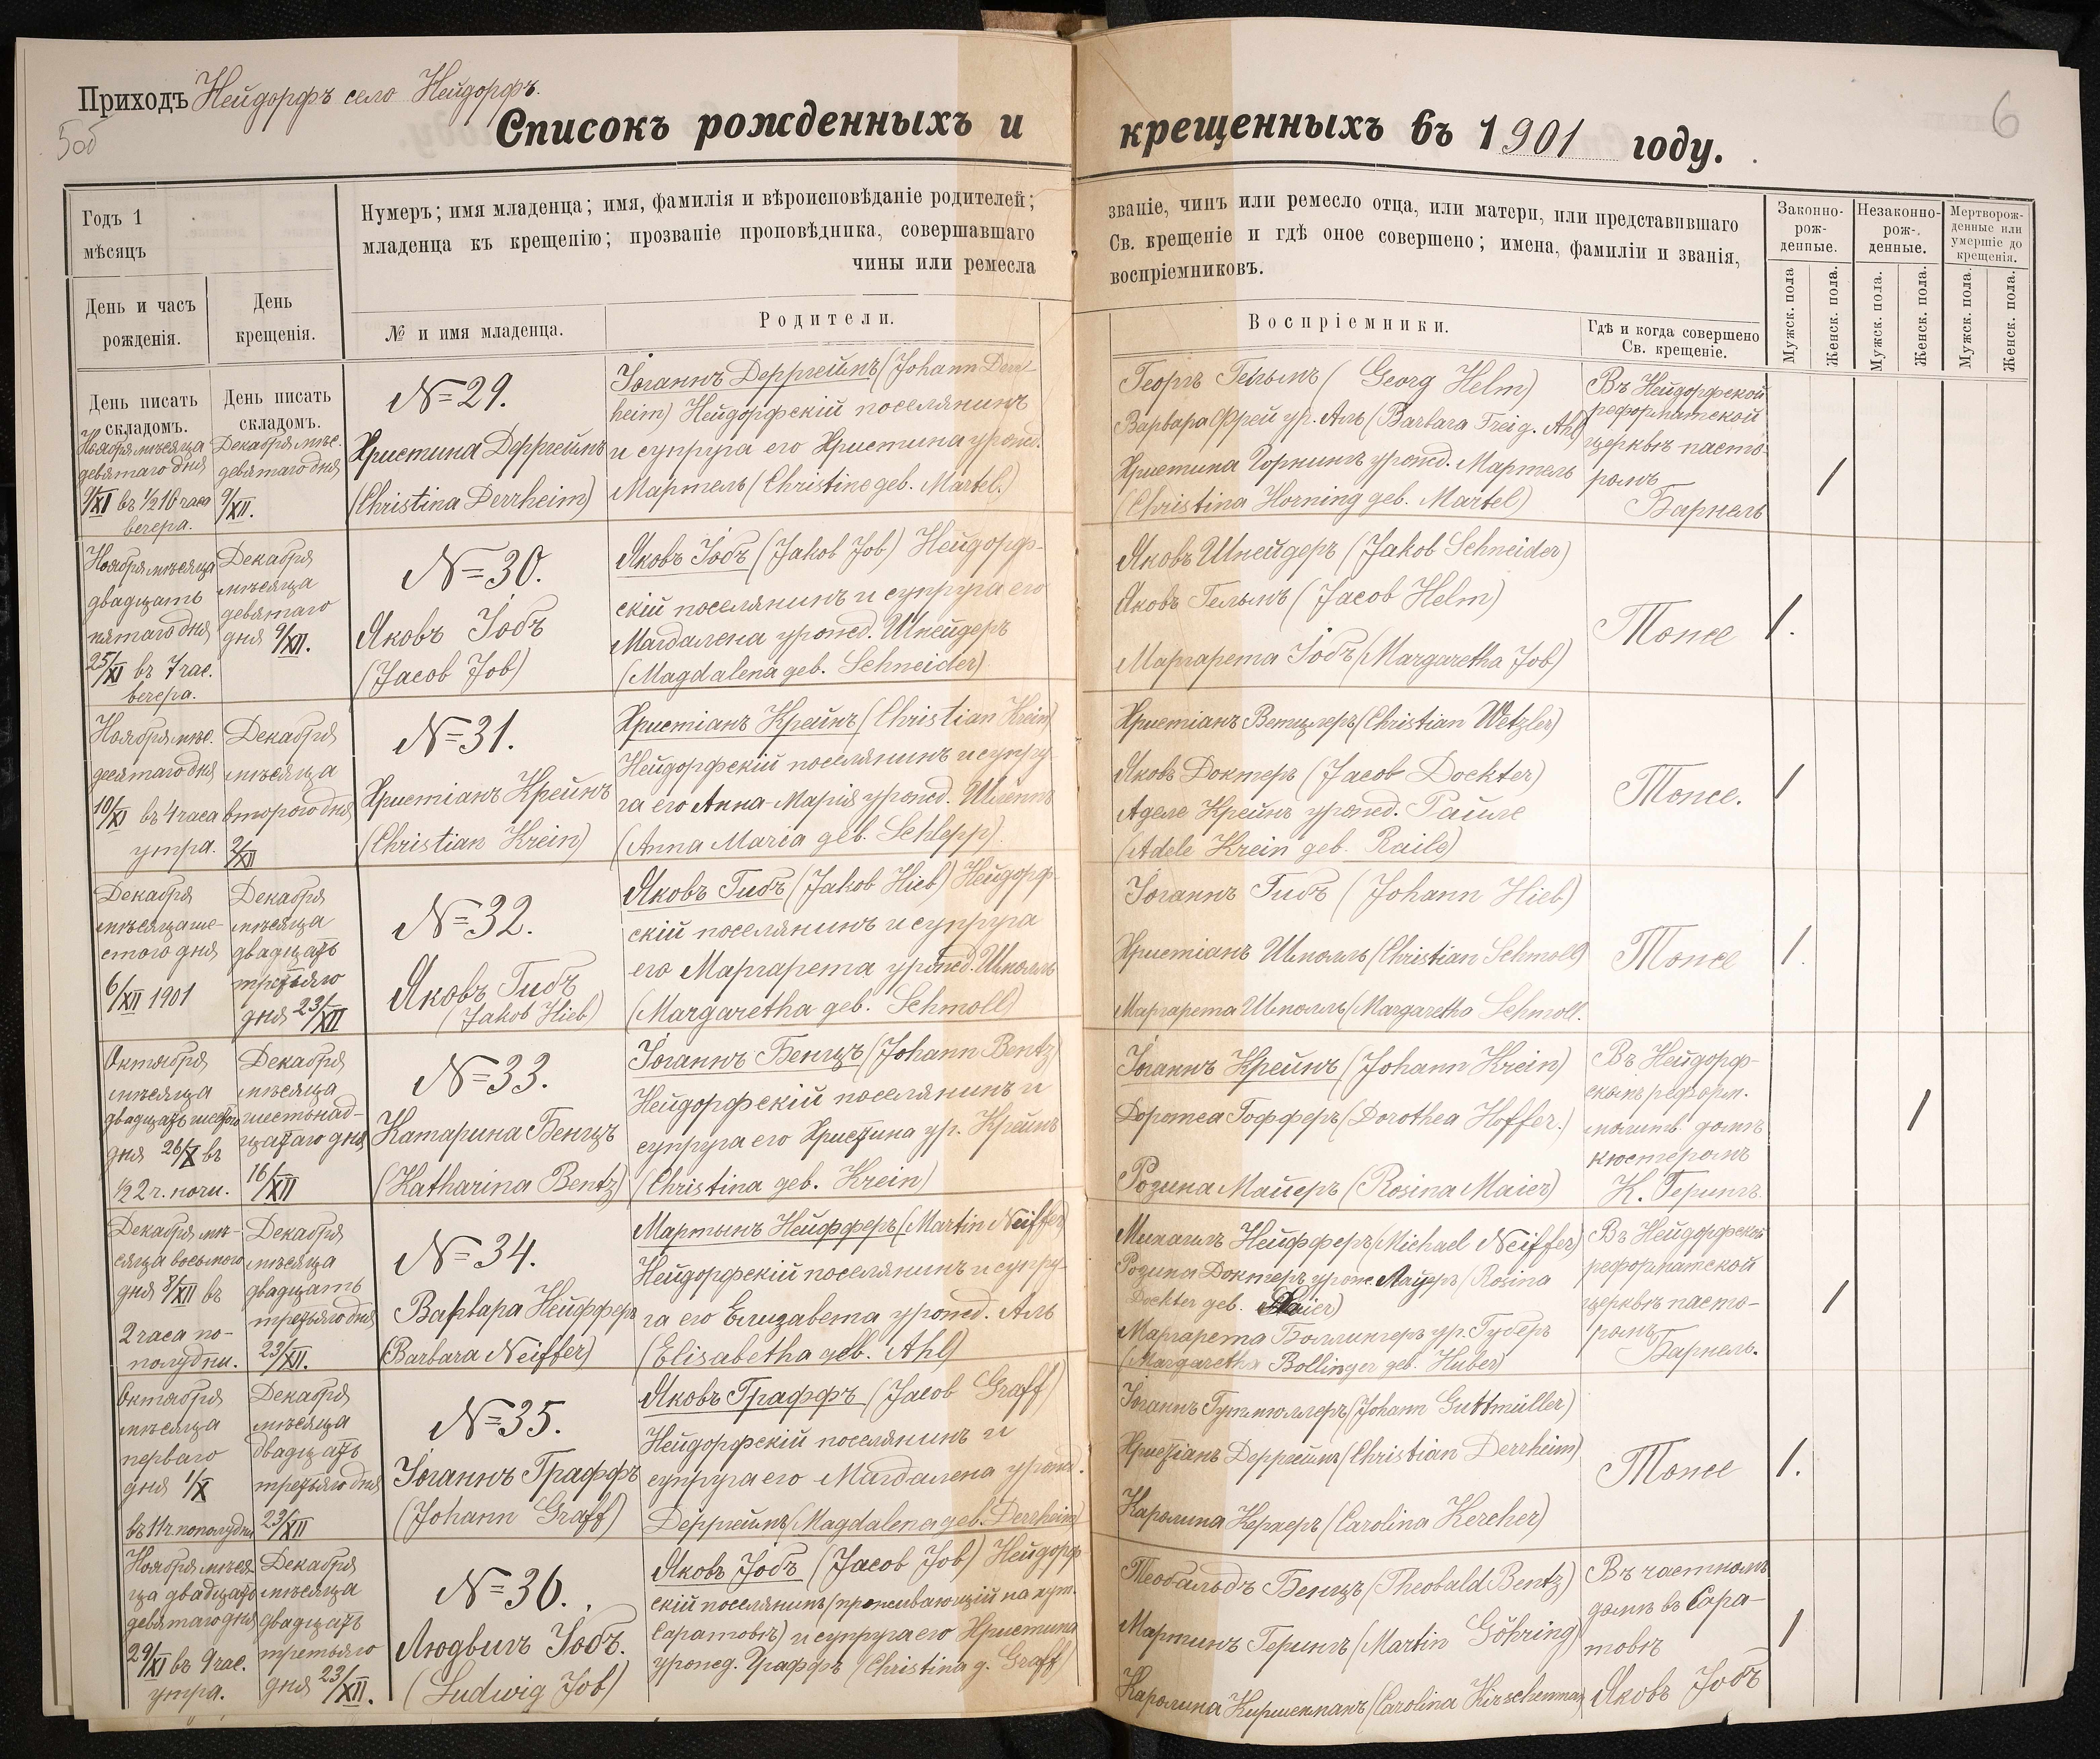 Приходъ Нейдорфъ село Нейдорфъ.
5об
6
Списокъ рожденныхъ и крещенныхъ въ 1901 году.
Годъ 1
мѣсяцъ
Нумеръ; имя младенца; имя, фамилія и вѣроисповѣданіе родителей;
младенца къ крещенію; прозваніе проповѣдника, совершавшаго
чины или ремесла
званіе, чинъ или ремесло отца, или матери, или представившаго
Св. крещеніе и гдѣ оное совершено; имена, фамиліи и званія,
воспріемниковъ.
Законно-
рож-
денные.
Незаконно-
рож-
денные.
Мертворож-
денные или
умершіе до
крещенія.
День и часъ
рожденія.
День
крещенія.
№ и имя младенца.
Родители.
Воспріемники.
Гдѣ и когда совершено
Св. крещеніе.
Мужск. пола
Женск. пола.
Мужск. пола.
Женск. пола.
Мужск. пола.
Женск. пола.
День писать
складомъ.
День писать
складомъ.
Ноября мѣсяца
девятаго дня
9/XI въ 1/2 10 часа
вечера.
Декабря мѣс.
девятаго дня
9/XII.
№ 29.
Христина Дерргеймъ
(Christina Derrheim)
Іоганнъ Дерргеймъ (Johann Derr-
heim) Нейдорфскій поселянинъ
и супруга его Христина урожд.
Мартель (Christine geb. Martel.)
Георгъ Гельмъ (Georg Helm)
Варвара Фрей ур. Аль (Barbara Frei g. Ahl)
Христина Горнингъ урожд. Мартель
(Christina Horning geb. Martel)
Въ Нейдорфской
реформатской
церквѣ пасто-
ромъ
Барнель
/
Ноября мѣсяца
двадцать
пятаго дня
25/XI въ 7 час.
вечера.
Декабря
мѣсяца
девятаго
дня 9/XII.
№ 30.
Яковъ Іобъ
(Jacob Job)
Яковъ Іобъ (Jakob Job) Нейдорф-
скій поселянинъ и супруга его
Магдалена урожд. Шнейдеръ
(Magdalena geb. Schneider)
Яковъ Шнейдеръ (Jakob Schneider)
Яковъ Гельмъ (Jacob Helm)
Маргарета Іобъ (Margaretha Job)
Тоже
/.
Ноября мѣс.
десятаго дня
10/XI въ 4 часа
утра.
Декабря
мѣсяца
второго дня
2/XII
№ 31.
Христіанъ Крейнъ
(Christian Krein)
Христіанъ Крейнъ (Christian Krein)
Нейдорфскій поселянинъ и супру-
га его Анна-Марія урожд. Шлеппъ
(Anna Maria geb. Schlepp).
Христіанъ Ветцлеръ (Christian Wetzler)
Яковъ Доктеръ (Jacob Dockter)
Аделе Крейнъ урожд. Райле
(Adele Krein geb. Raile)
Тоже.
/
Декабря
мѣсяца ше-
стого дня
6/XII 1901
Декабря
мѣсяца
двадцать
третьяго
дня 23/XII
№ 32.
Яковъ Гибъ
(Jakob Hieb)
Яковъ Гибъ (Jakob Hieb) Нейдорф-
скій поселянинъ и супруга
его Маргарета урожд. Шмолль
(Margaretha geb. Schmoll)
Іоганнъ Гибъ (Johann Hieb)
Христіанъ Шмолль (Christian Schmoll)
Маргарета Шмолль (Margaretha Schmoll.
Тоже
/.
Октября
мѣсяца
двадцать шестого
дня 26/X въ
1/2 2 ч. ночи.
Декабря
мѣсяца
шестьнад-
цатаго дня
16/XII
№ 33.
Катарина Бенцъ
(Katharina Bentz)
Іоганнъ Бенцъ (Johann Bentz)
Нейдорфскій поселянинъ и
супруга его Христина ур. Крейнъ
(Christina geb. Krein)
Іоганнъ Крейнъ (Johann Krein)
Доротеа Гофферъ (Dorothea Hoffer.)
Розина Майеръ (Rosina Maier)
Въ Нейдорф-
скомъ реформ.
молитв. домѣ
кюстеромъ
К. Герингъ.
/
Декабря мѣ-
сяца восьмого
дня 8/XII въ
2 часа по-
полудни.
Декабря
мѣсяца
двадцать
третьяго дня
23/XII.
№ 34.
Варвара Нейфферъ
(Barbara Neiffer)
Мартынъ Нейфферъ (Martin Neiffer)
Нейдорфскій поселянинъ и супру-
га его Елизавета урожд. Аль
(Elisabetha geb. Ahl)
Михаилъ Нейфферъ (Michael Neiffer)
Розина Доктеръ урожд. Майеръ (Rosina
Dockter geb. Maier)
Маргарета Боллингеръ ур. Губеръ
(Margaretha Bollinger geb. Huber)
Въ Нейдорфской
реформатской
церквѣ пасто-
ромъ
Барнель.
/
Октября
мѣсяца
перваго
дня 1/X
въ 11 ч. пополудни
Декабря
мѣсяца
двадцать
третьяго дня
23/XII
№ 35.
Іоганнъ Граффъ
(Johann Graff)
Яковъ Граффъ (Jacob Graff)
Нейдорфскій поселянинъ и
супруга его Магдалена урожд.
Дерргеймъ (Magdalena geb. Derrheim)
Іоганнъ Гутмюллеръ (Johann Guttmüller)
Христіанъ Дерргеймъ (Christian Derrheim)
Каролина Керхеръ (Carolina Kercher)
Тоже
/.
Ноября мѣся-
ца двадцать
девятаго дня
29/XI въ 9 час.
утра.
Декабря
мѣсяца
двадцать
третьяго
дня 23/XII.
№ 36.
Людвигъ Іобъ.
(Ludwig Job)
Яковъ Іобъ (Jacob Job) Нейдорф-
скій поселянинъ (проживающій на хут.
Саратовѣ) и супруга его Христина
урожд. Граффъ (Christina g. Graff)
Теобальдъ Бенцъ (Theobald Bentz)
Мартинъ Герингъ (Martin Göhring)
Каролина Киршенманъ (Carolina Kirschenman)
Въ частномъ
домѣ въ Сара-
товѣ
Яковъ Іобъ
/